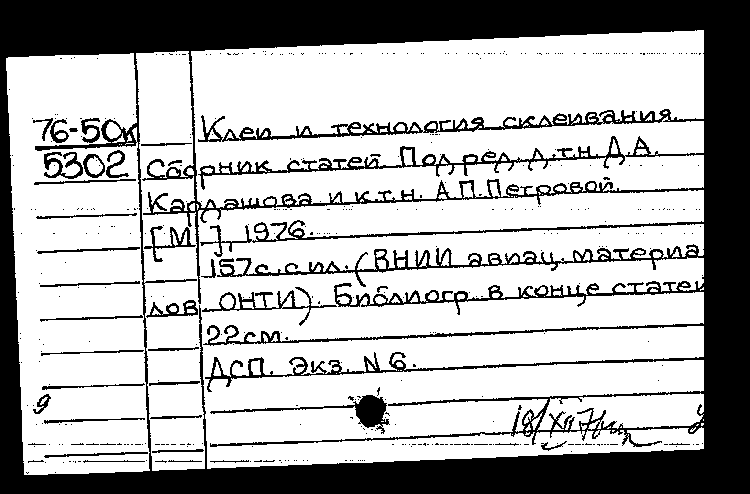 76-50к Клеи и технология склеивания.
5302 Сборник статей. Под ред. д.т.н. Д.А.
Кардашова и к.т.н. А.П.Петровой.
[М], 1976.
157с. с ил. (ВНИИ авиац. материа
лов. ОНТИ). Библиогр. в конце статей
22см.
ДСП. Экз. N 6.
9
18/XII